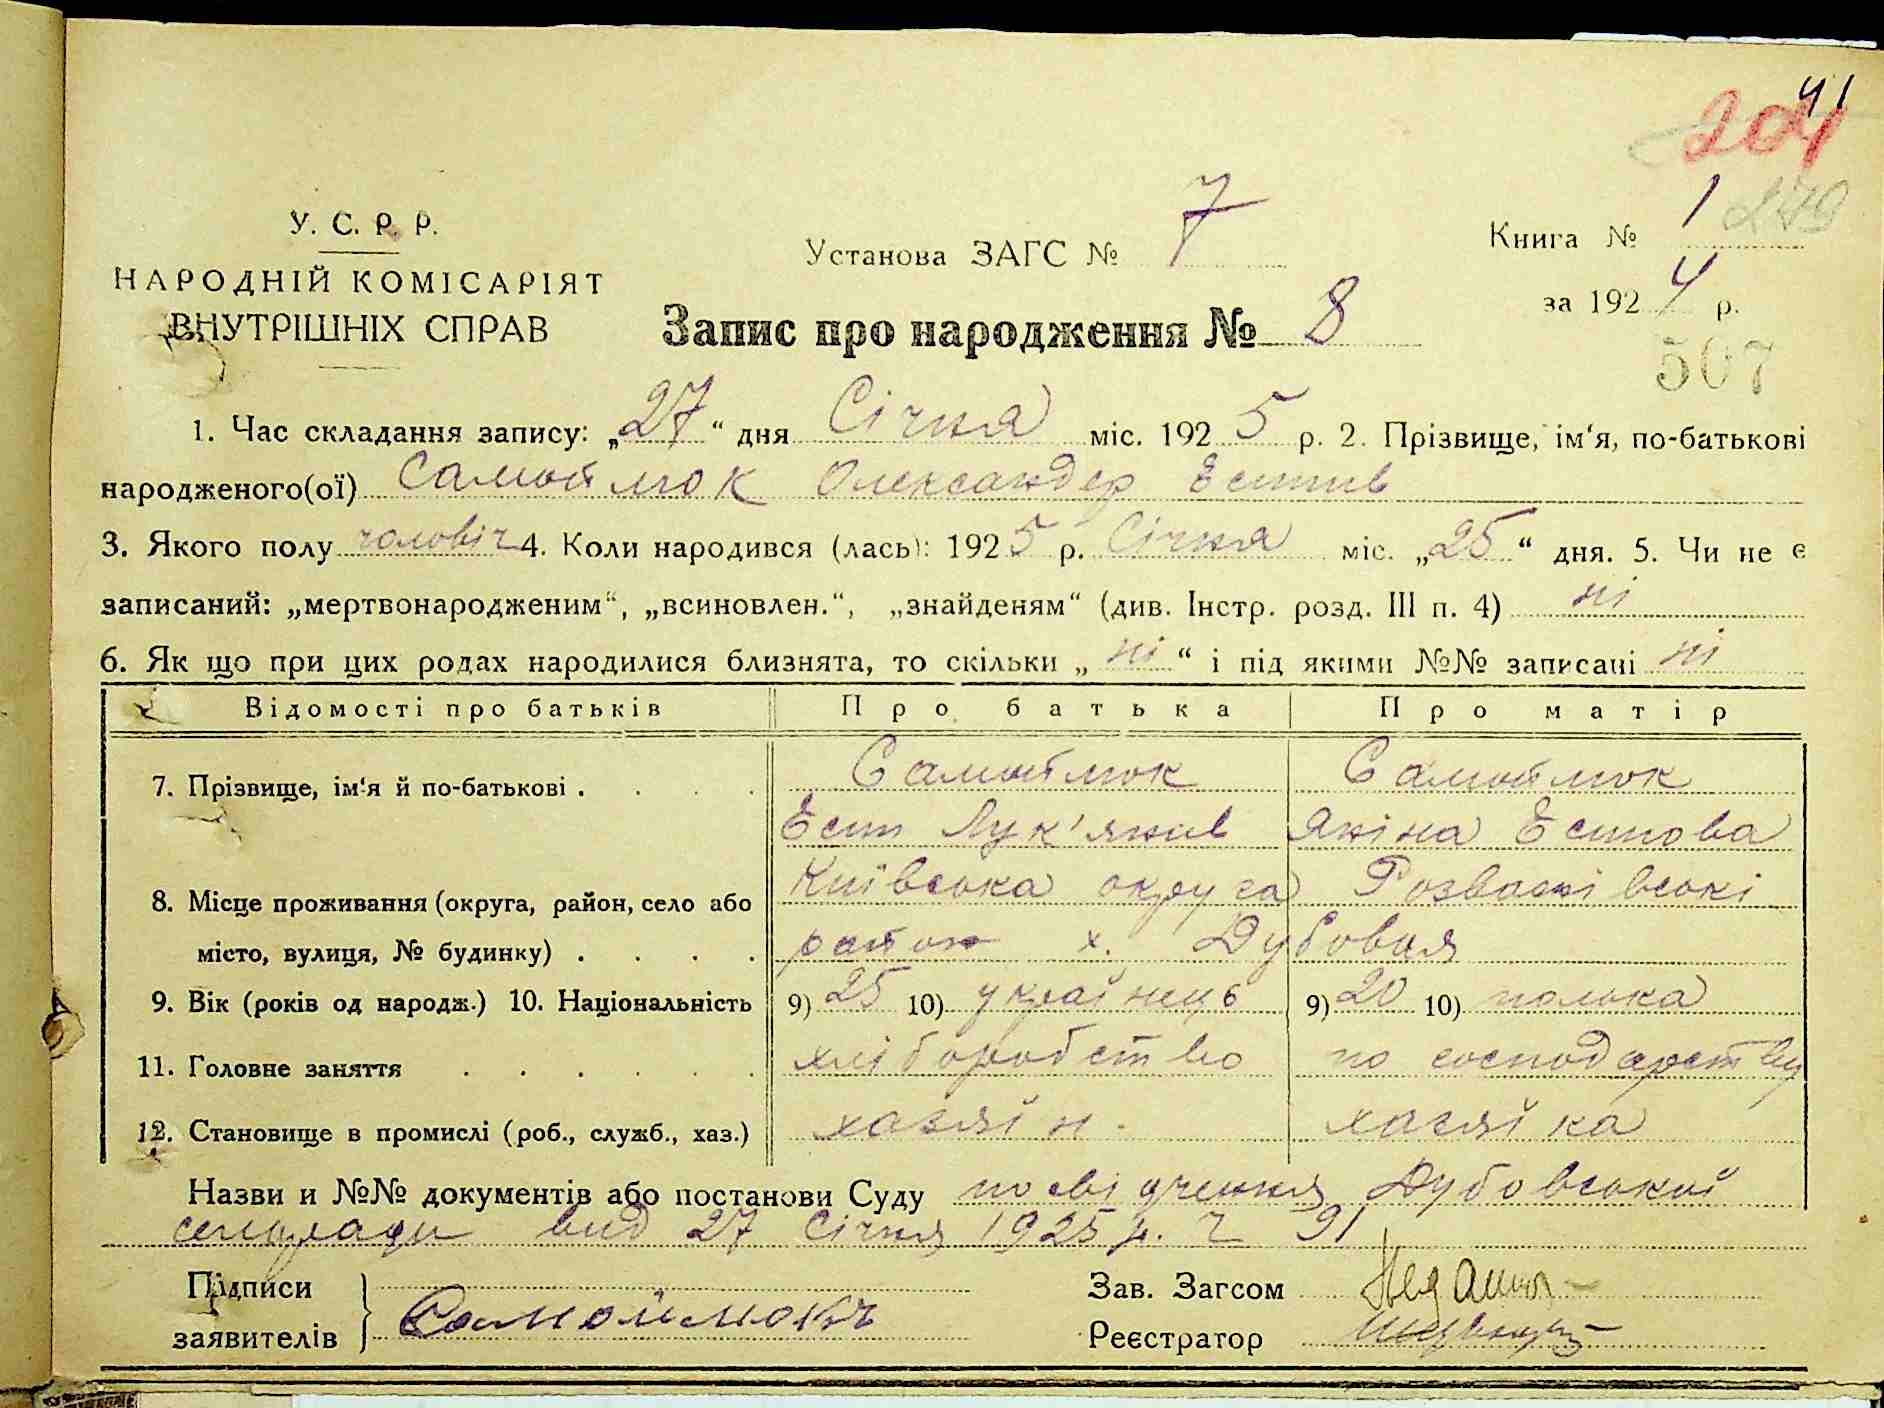 41
204
279
У. С. Р. Р.
НАРОДНІЙ КОМІСАРІЯТ
ВНУТРІШНІХ СПРАВ
Установа ЗАГС № 7
Книга № 1
за 1924 р.
Запис про народження № 8
507
1. Час складання запису: „27“ дня Січня міс. 1925 р. 2. Прізвище, ім‘я, по-батькові
народженого(ої) Самойлюк Олександер Естив
3. Якого полу чоловіч 4. Коли народився (лась): 1925 р. Січня міс. „25“ дня. 5. Чи не є
записаний: „мертвонародженим“, „всиновлен.“, „знайденям“ (див. Інстр. розд. III п. 4) ні
6. Як що при цих родах народилися близнята, то скільки „ні“ і під якими №№ записані ні
Відомості про батьків Про батька Про матір
7. Прізвище, ім‘я й по-батькові . Самойлюк Самойлюк
Ест Лук'янив Яніна Естова
8. Місце проживання (округа, район, село або Київська округа Розважівські
місто, вулиця, № будинку) . район х. Дубовая
9. Вік (років од народж.) 10. Національність 9) 25 10) украінець 9) 20 10) полька
11. Головне заняття хліборобство по господарству
12. Становище в промислі (роб., служб., хаз.) хазяін. хазяйка
Назви и №№ документів або постанови Суду посвідчення Дубовськой
сельради вид 27 Січня 1925 р. Ч 91
Підписи
заявителів Самойлюкъ
Зав. Загсом
Реєстратор